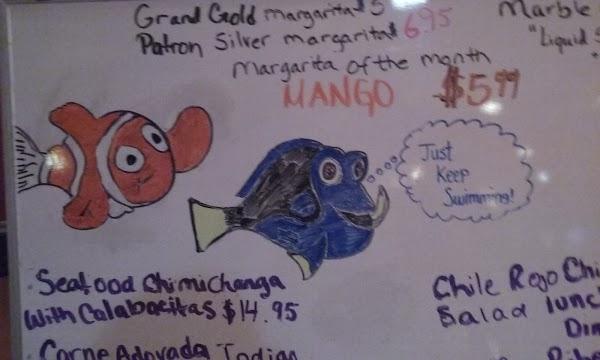 Grand Gold margarita $5
Patron Silver margarita 6.95
margarita of the month
MANGO $5.99
Marble
"Liquid
Just
Keep
Swimming!
Seafood Chimichanga
With Calabacitas $14.95
Carne Adovada Indian
Chile Rojo Chi
Salad lunc
Din